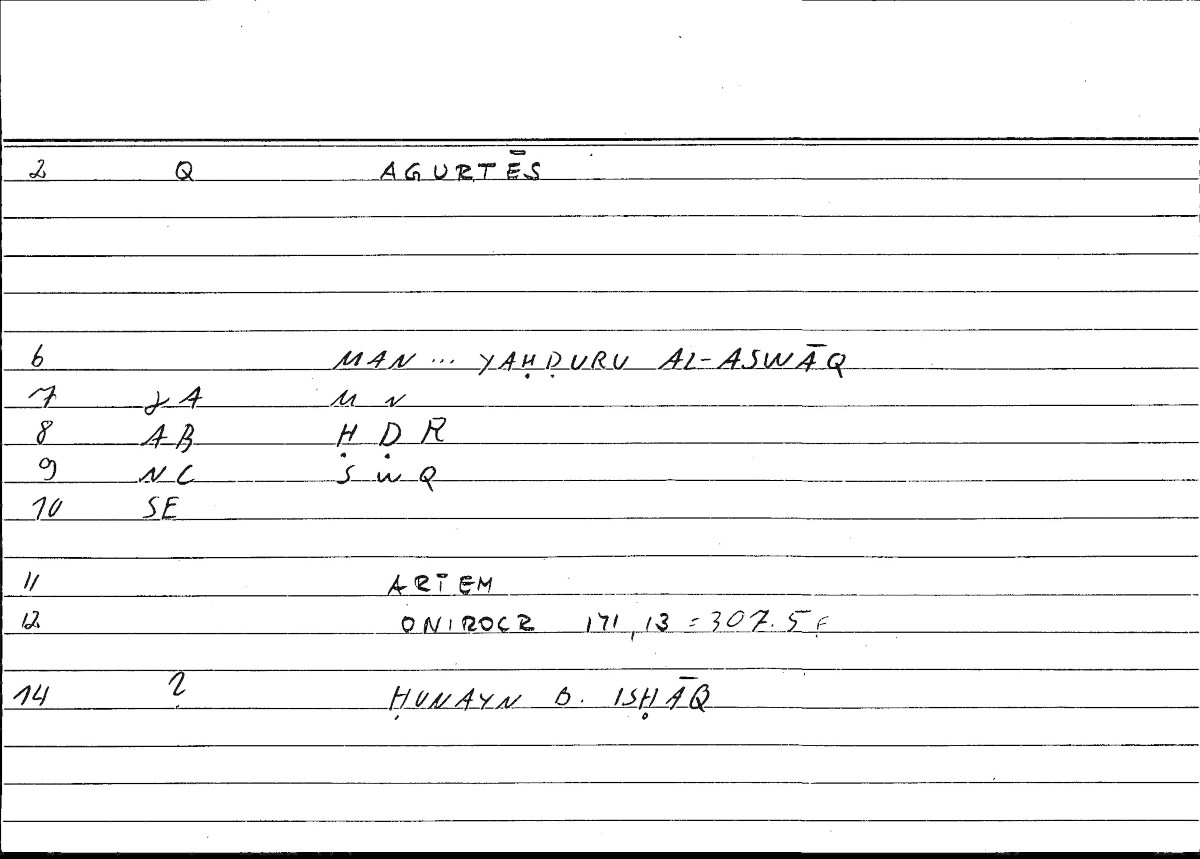 2 Q AGURTĒS
6 MAN ... YAḤḌURU AL-ASWĀQ
7 γA M N
8 AB Ḥ Ḍ R
9 NC S W Q
10 SE
11 ARTEM
12 ONIROCR 171,13 = 307.5 F
14 ? ḤUNAYN B. ISḤĀQ